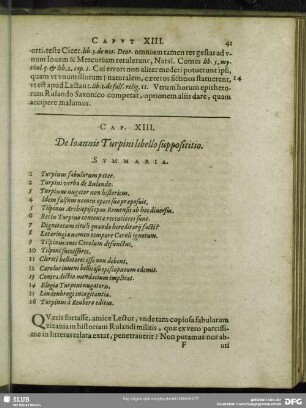 CAPVT XIII. 41
orti, teste Cicer. lib. 3. de nat. Deor. omnium tamen res gestas ad v-
num Iovem & Mercurium retulerunt, Natal. Comes lib. 5. my-
thol. 5. & lib. 2. cap. 1. Cui errori non aliter mederi potuerunt ipsi,
quam vt vnum illorum naturalem, cæteros fictitios statuerent, 14
vt est apud Lactant. lib. 1. de fals. relig. 11. Vtrum horum epithetorum
rum Rulando Saxonico competat, optionem aliis dare, quam
accipere malumus.
CAP. XIII.
De Ioannis Turpini libello supposititio.
SVMMARIA.
1 Turpinus fabularum pater.
2 Turpini verba de Rulando.
3 Turpinum nugator non historicus.
4 Idem falsum nomen operi suo præposuit.
5 Tilpinus Archiepiscopus Remensis ab hoc diversus.
6 Rectio Turpino contenta recentiores sunt.
7 Dignitatum tituli quando hereditarij facti?
8 Lotaringia nomen tempore Caroli ignotum.
9 Tilpinus ante Carolum defunctus.
10 Tilpini successores.
11 Clerici bellatores esse non debent.
12 Carolus
13 Contradictio mendacium implicat.
14 Elogia Turpini nugatoris.
15 Lindenbrogi incogitantia.
16 Turpinus à Reubero editus.
QVæris fortasse, amice Lector, vnde tam copiosa fabularum
zizania in historiam Rulandi militis, quæ ex vero parcissi-
me in litteras relata extat, penetraverit? Non putamus not ab-
F uti
SLUB